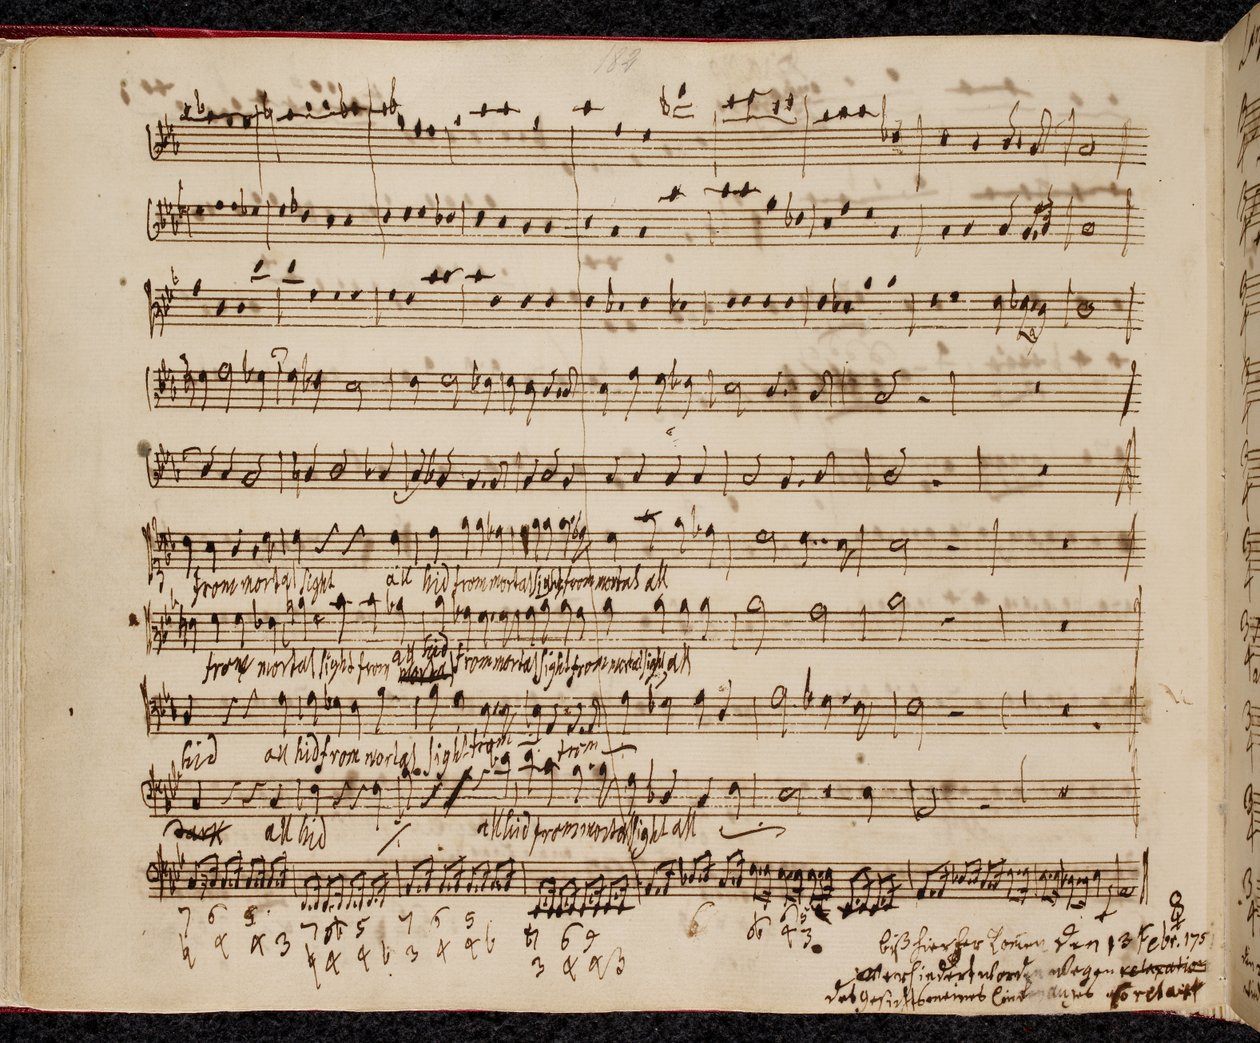 182
from mortal sight all hid from mortal sight from mortal all
from mortal sight from all hid mortal from mortal sight from mortal sight all
hid all hid from mortal sight from from
dark all hid all hid from mortal sight all
7 6 5 7 6 5 7 6 5 7 6 6 6 5
4 4 3 4 4 3 4 4 3 4 4 3 4 3
biß hierher komen den 13 Febr. 175
verhindert worden wegen relaxation
des gesichts meines linken auges so relaxt